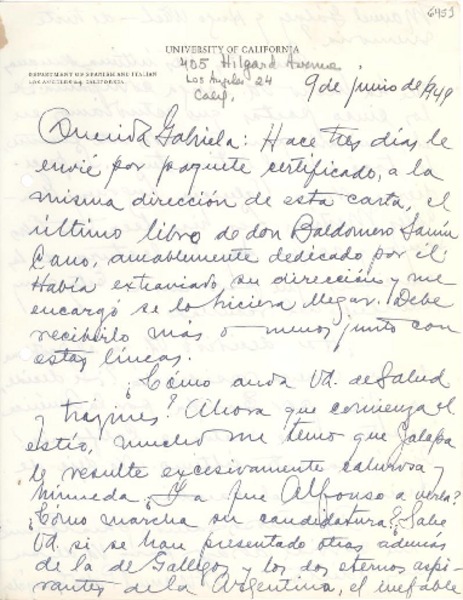 6453
UNIVERSITY OF CALIFORNIA
405 Hilgard Avenue
DEPARTMENT OF SPANISH AND ITALIAN
Los Angeles 24
LOS ANGELES 24, CALIFORNIA
Calif.
9 de junio de 1949
Querida Gabriela: Hace tres días le
envié por paquete certificado, a la
misma dirección de esta carta, el
último libro de don Baldomero Sanín
Cano, amablemente dedicado por él
Había extraviado su dirección y me
encargó se lo hiciera llegar. Debe
recibirlo más o menos junto con
estas líneas.
¿Cómo anda Ud. de salud
y trajines? Ahora que comienza el
estío, mucho me temo que Jalapa
le resulte excesivamente calurosa y
húmeda. ¿Ya fue Alfonso a verla?
¿Cómo marcha su candidatura? ¿Sabe
Ud. si se han presentado otras además
de la de Gallegos y los dos eternos aspi-
rantes de la Argentina, el inefable